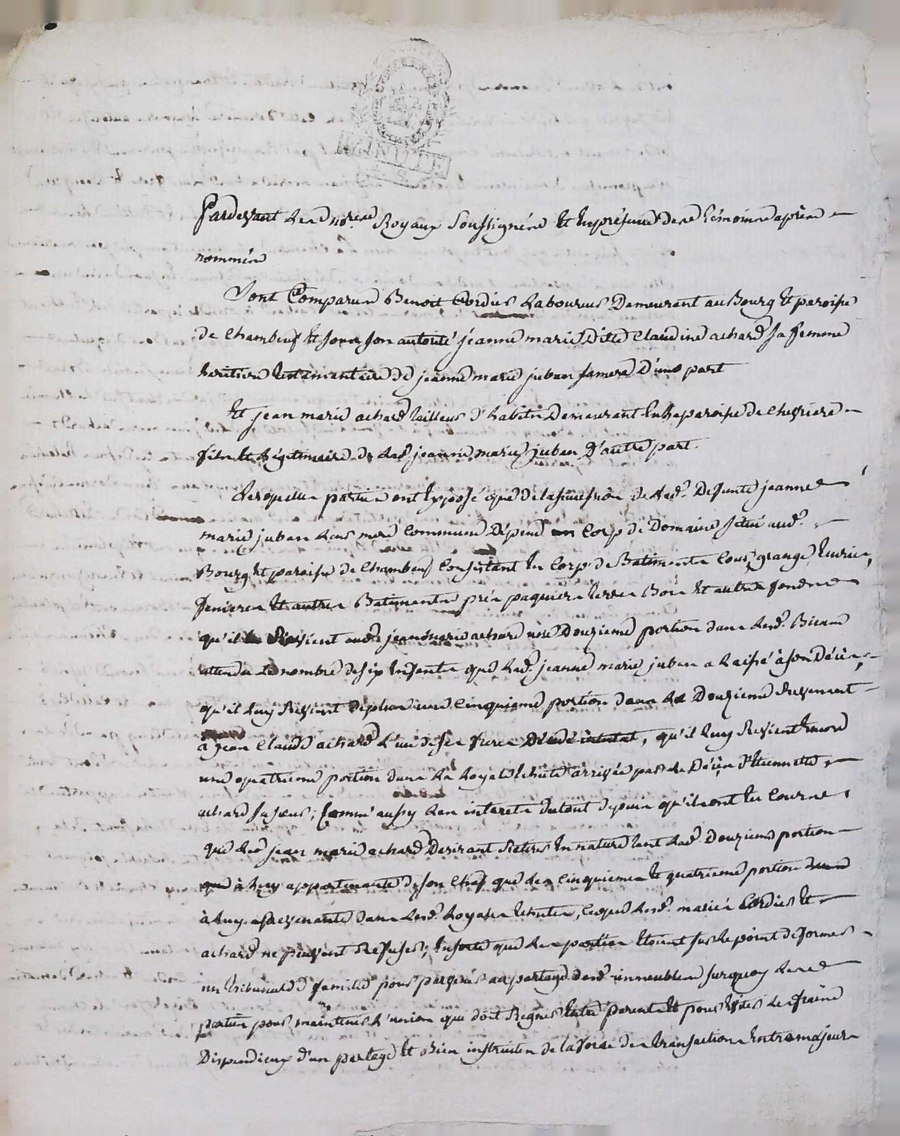 MINUTE
Pardevant les no.res Royaux Soussignés et en présence des témoins après
nommés
Sont Comparus Benoit Cordier Laboureur Demeurant au Bourg et paroisse
de Chambeuf et sous son autorité jeanne marie dite Claudine achard sa femme
héritière testamentaire de jeanne marie juban sa mere D'une part
Et jean marie achard tailleur d'habits Demeurant en la paroisse de
fils et légitimaire de lad. jeanne marie juban D'autre part
Lesquelles parties ont Exposé que de la succession de lad. Defunte jeanne
marie juban leur mere Commune Dépend un Corps de Domaine situé aud.
Bourg et paroisse de Chambeuf Consistant en Corps de Batiments Cour, grange, Ecurie,
feniere et autres Batiments prés paquiers terres Bois et autres fonds
qu'il Revient aud. jean marie achard une Douzieme portion dans lesd. Biens
attendu le nombre de six enfants que lad. jeanne marie juban a laissé à son Décès,
qu'il luy Revient de plus une Cinquieme portion dans le Douzieme Revenant
à jean Claude achard l'un de ses freres Décédé intestat, qu'il luy Revient encore
une quatrieme portion dans la Royale Echute arrivée par le Décès d'Etiennette
achard sa sœur, Comm' aussy les interets du tout depuis qu'ils ont eu Cours
que led. jean marie achard Desirant Retirer en nature tant lad. Douzieme portion
que à luy appartenante de son Chef que les Cinquieme et quatrieme portion
à luy advenante dans lesd. Royales Echutes, ce que lesd. mariés Cordier et
achard ne peuvent Refuser, en sorte que les parties étoient sur le point de former
un tribunal de famille pour parvenir au partage desd. immeubles surquoy lesd.
parties pour maintenir l'union que doit Regner entre parents et pour Eviter les frais
Dispendieux d'un partage et Bien instruites de la force des transactions Entre majeurs